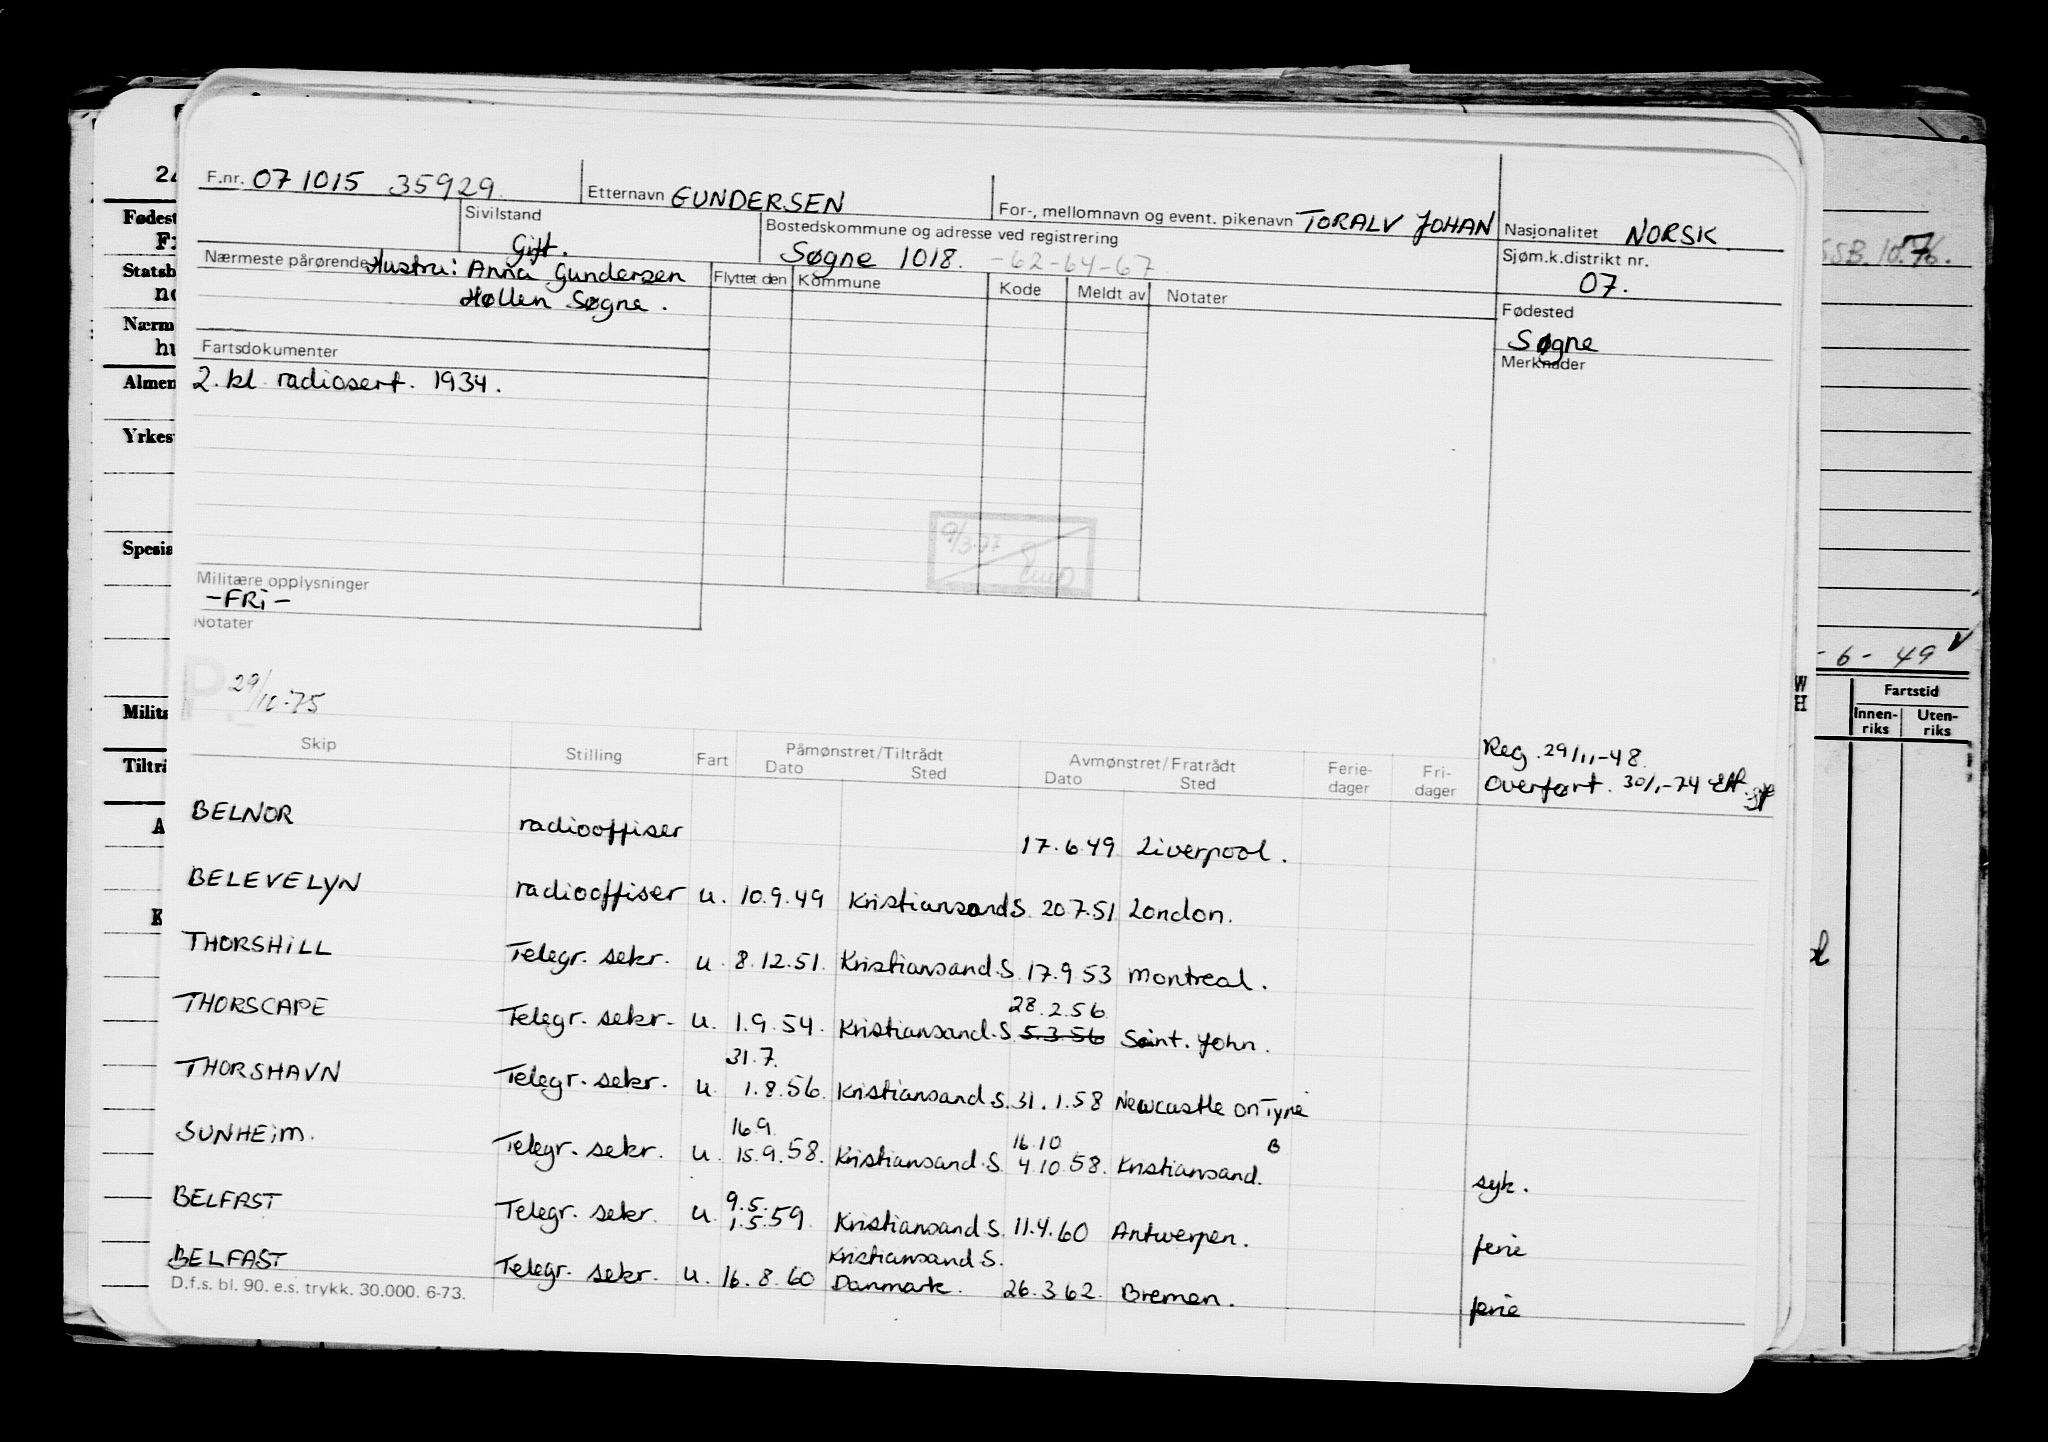 F.nr. 071015 35929
Etternavn GUNDERSEN
For-, mellomnavn og event. pikenavn TORALV JOHAN
Nasjonalitet NORSK
Sivilstand
Gift.
Bostedskommune og adresse ved registrering
Søgne 1018. -62-64-67
Sjøm.k.distrikt nr.
07.
Nærmeste pårørende Hustru: Anna Gundersen
Høllen Søgne.
Flyttet den Kommune Kode Meldt av Notater
Fødested
Søgne
Merknader
Fartsdokumenter
2. kl. radiosert. 1934.
9/3-77
Militære opplysninger
-FRI-
Notater
P. 29/10-75
Reg. 29/11-48.
Overført. 30/1-74
Skip Stilling Fart Påmønstret/Tiltrådt Avmønstret/Fratrådt Ferie- Fri-
Dato Sted Dato Sted dager dager
BELNOR radiooffiser 17.6.49 Liverpool.
BELEVELYN radiooffiser u. 10.9.49 Kristiansand S. 20.7.51 London.
THORSHILL Telegr. sekr. u. 8.12.51. Kristiansand.S. 17.9.53 Montreal.
28.2.56
THORSCAPE Telegr. sekr. u. 1.9.54. Kristiansand.S. 5.3.56 Saint. John.
31.7.
THORSHAVN Telegr. sekr. u. 1.8.56. Kristiansand.S. 31.1.58 Newcastle on Tyne
16.9. 16.10 B
SUNHEIM. Telegr. sekr. u. 15.9.58. Kristiansand.S. 4.10.58. Kristiansand. syk.
9.5.
BELFAST Telegr. sekr. u. 1.5.59. Kristiansand S. 11.4.60 Antwerpen. ferie
Kristiansand S.
BELFAST Telegr. sekr. u. 16.8.60 Danmark. 26.3.62. Bremen. ferie
D.f.s. bl. 90. e.s. trykk. 30.000. 6-73.
Fødest
Statsb
Nærm
hu
Almen
Yrkes
Spesia
Milit
Tiltr
-6-49
W
H
Fartstid
Innen-
riks
Uten-
riks